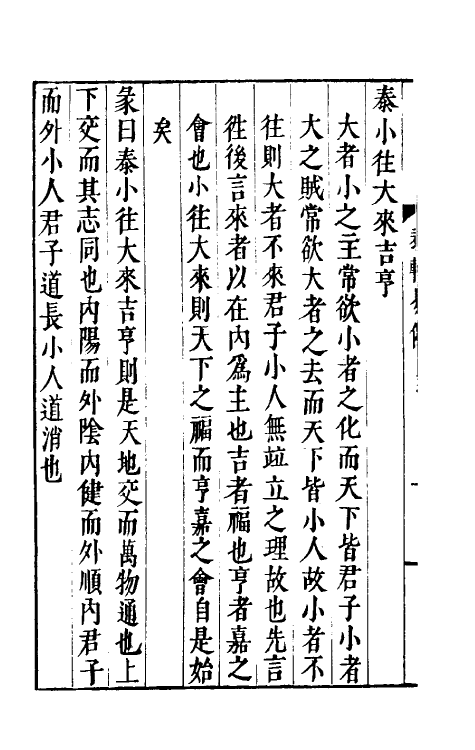 泰小往大來吉亨
大者小之主常欲小者之化而天下皆君子小者
大之賊常欲大者之去而天下皆小人故小者不
往則大者不來君子小人無竝立之理故也先言
徃後言來者以在内爲主也吉者福也亨者嘉之
會也小往大來則天下之福而亨嘉之會自是始
矣
彖曰泰小往大來吉亨則是天地交而萬物通也上
下交而其志同也内陽而外陰内健而外順内君子
而外小人君子道長小人道消也